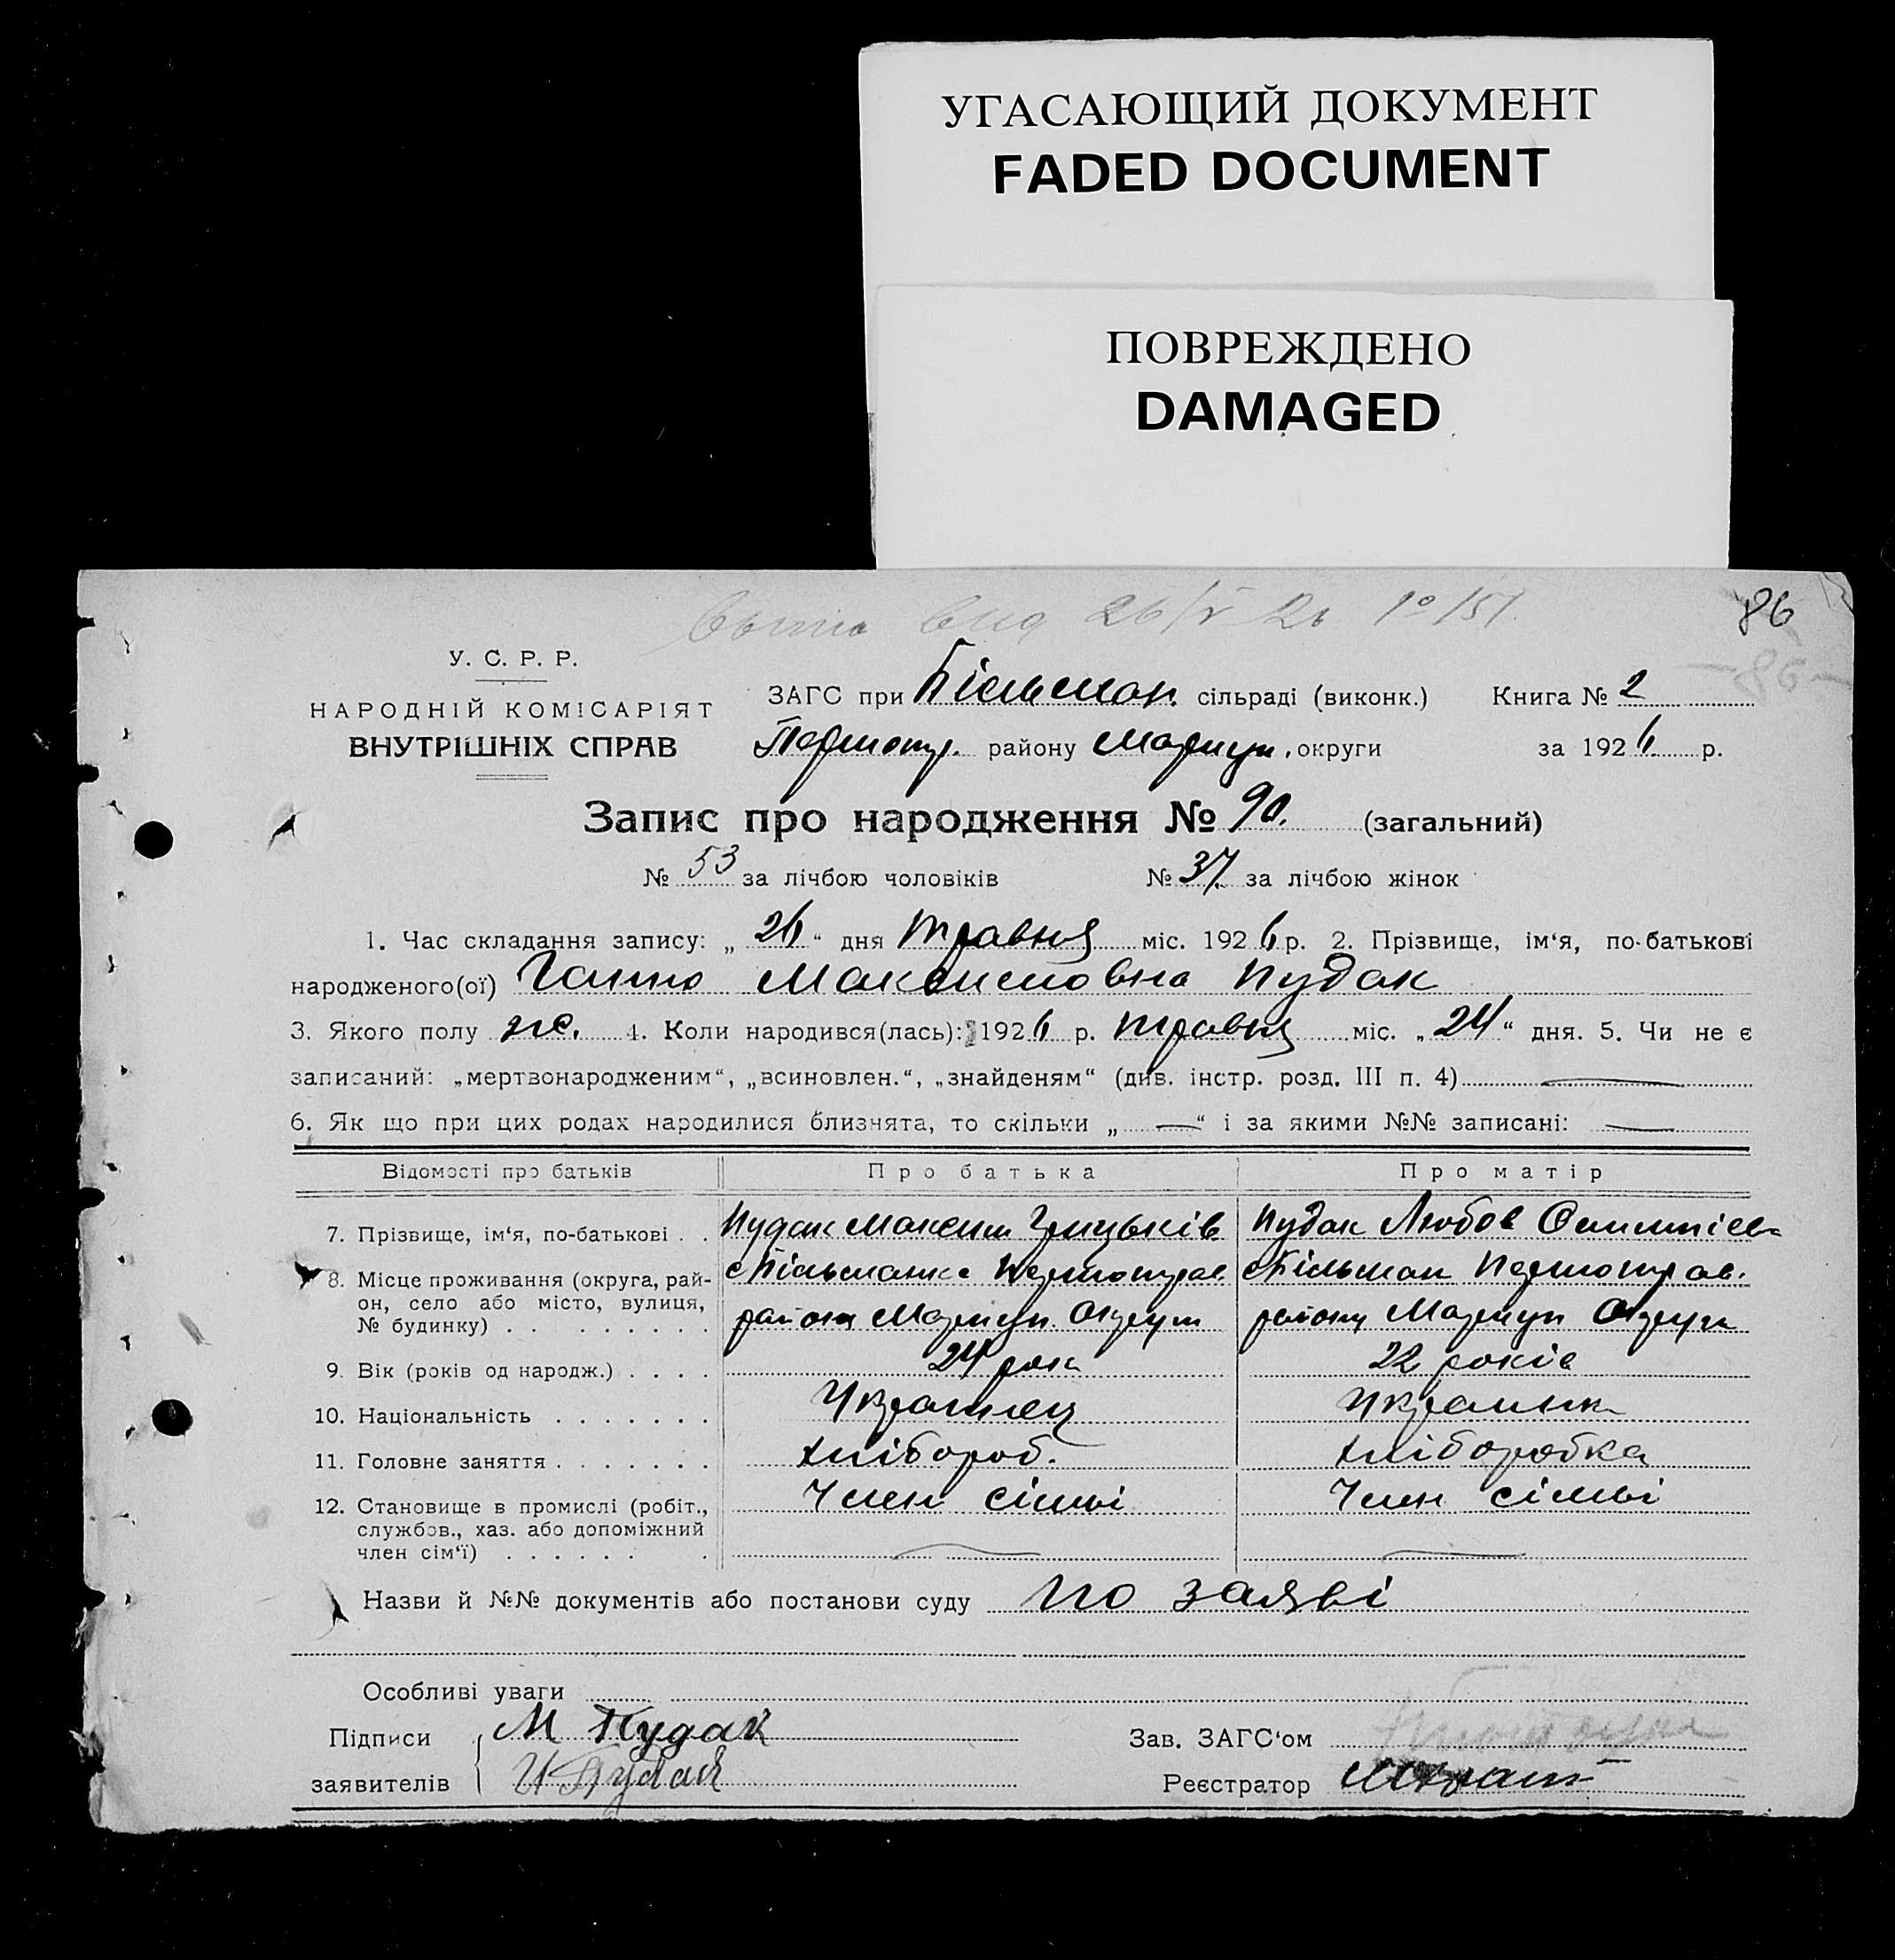 УГАСАЮЩИЙ ДОКУМЕНТ
FADED DOCUMENT
ПОВРЕЖДЕНО
DAMAGED
26/V 26 № 151.
86
У. С. Р. Р.
НАРОДНІЙ КОМІСАРІЯТ
ВНУТРІШНІХ СПРАВ
ЗАГС при Більман. сільраді (виконк.) Книга № 2
району Маріуп. округи за 1926 р.
Запис про народження № 90. (загальний)
№ 53 за лічбою чоловіків № 37. за лічбою жінок
1. Час складання запису: „26“ дня травня міс. 1926 р. 2. Прізвище, ім‘я, по-батькові
народженого(ої) Ганна Максимовна Пудак
3. Якого полу же. 4. Коли народився(лась): 1926 р. травня міс. „24“ дня. 5. Чи не є
записаний: „мертвонародженим“, „всиновлен.“, „знайденям“ (див. інстр. розд. III п. 4) —
6. Як що при цих родах народилися близнята, то скільки „—“ і за якими №№ записані: —
Відомості про батьків Про батька Про матір
7. Прізвище, ім‘я, по-батькові . . Пудак Максим Грицьків Пудак Любов
8. Місце проживання (округа, рай-
он, село або місто, вулиця,
№ будинку) . . . . . . . . . району Маріуп Округи
9. Вік (років од народж.) . . . . 24 рок 22 років
10. Національність . . . . . . . Украінец Украинка
11. Головне заняття . . . . . . . хлібороб. хліборобка
12. Становище в промислі (робіт., Член сімьі Член сімьі
службов., хаз. або допоміжний
член сім‘ї) . . . . . . . — —
Назви й №№ документів або постанови суду по заяві
Особливі уваги
Підписи М Пудак Зав. ЗАГС‘ом
заявителів И Пудак Реєстратор